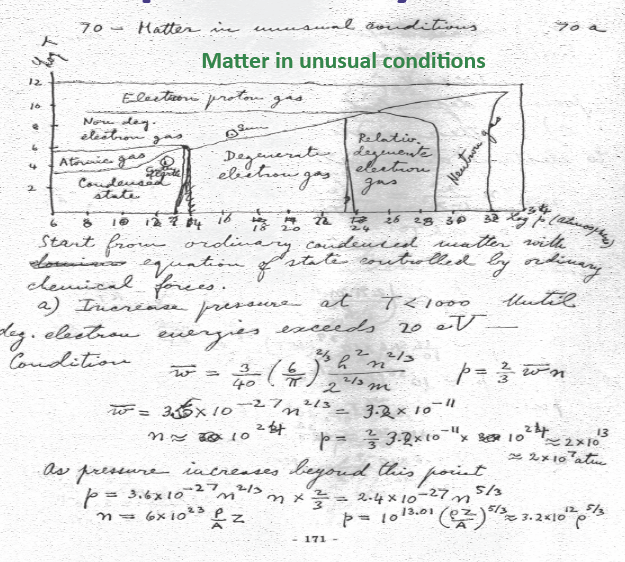 70 - Matter in unusual conditions 70 a
Matter in unusual conditions
12
10
8
6
4
2
Electron proton gas
Non deg.
electron gas
Sun
Atomic gas
Condensed
state
Degenerate
electron gas
Relativ.
degenerate
electron
gas
Neutron gas
6 8 10 12 14 16 18 20 22 24 26 28 30 32 log p (atmospheres)
Start from ordinary condensed matter with
equation of state controlled by ordinary
chemical forces.
a) Increase pressure at T<1000 Until
deg. electron energies exceeds 20 eV —
Condition w̄ = 3/40 (6/π)^2/3 h² n^2/3 / 2^2/3 m p = 2/3 w̄ n
w̄ = 3.6 × 10^-27 n^2/3 = 3.2 × 10^-11
n ≈ 10^24 p = 2/3 3.2×10^-11 × 10^24 ≈ 2×10^13
≈ 2×10^7 atm
As pressure increases beyond this point
p = 3.6×10^-27 n^2/3 n × 2/3 = 2.4×10^-27 n^5/3
n = 6×10^23 ρ/A Z p = 10^13.01 (ρZ/A)^5/3 ≈ 3.2×10^12 ρ^5/3
- 171 -